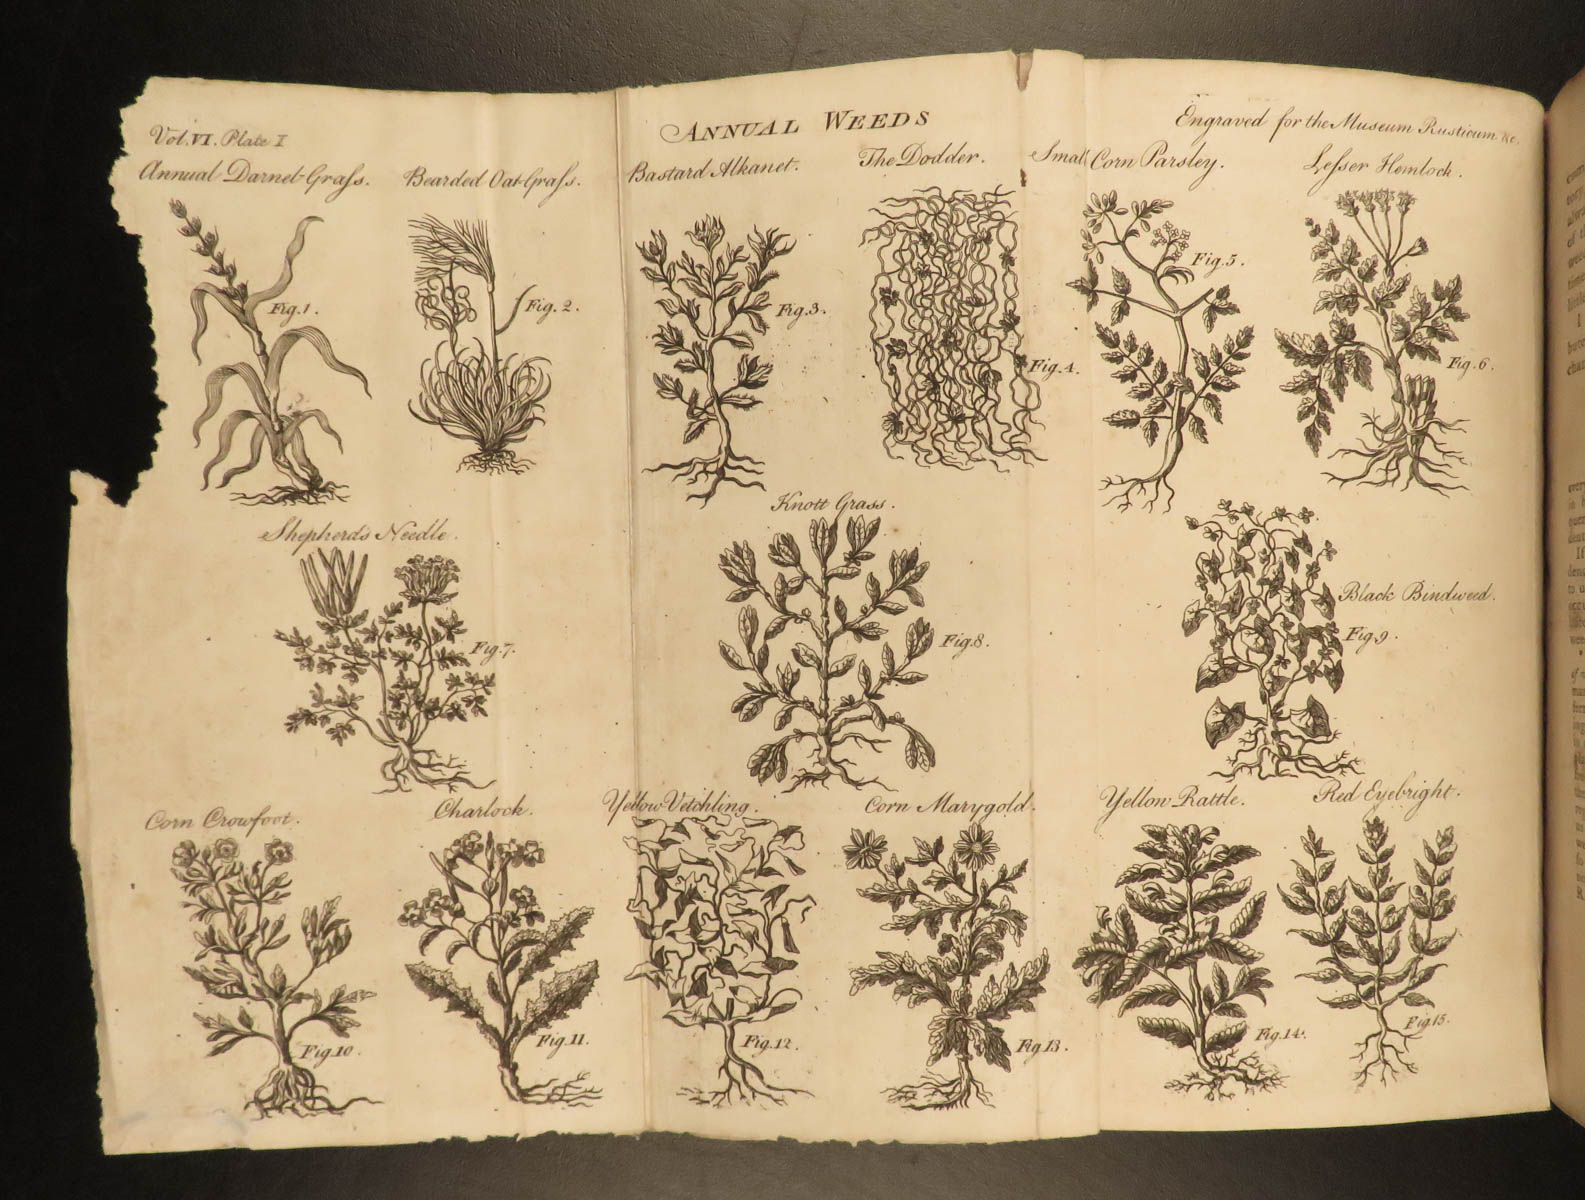 ANNUAL WEEDS
Vol. VI. Plate I
Engraved for the Museum Rusticum &c.
Annual Darnel-Graſs.
Bearded Oat-Graſs.
Bastard Alkanet.
The Dodder.
Small Corn Parsley.
Leſser Hemlock.
Fig. 1.
Fig. 2.
Fig. 3.
Fig. 4.
Fig. 5.
Fig. 6.
Shepherds Needle.
Knott Grass.
Black Bindweed.
Fig. 7.
Fig. 8.
Fig. 9.
Corn Crowfoot.
Charlock.
Yellow Vetchling.
Corn Marygold.
Yellow Rattle.
Red Eyebright.
Fig. 10.
Fig. 11.
Fig. 12.
Fig. 13.
Fig. 14.
Fig. 15.